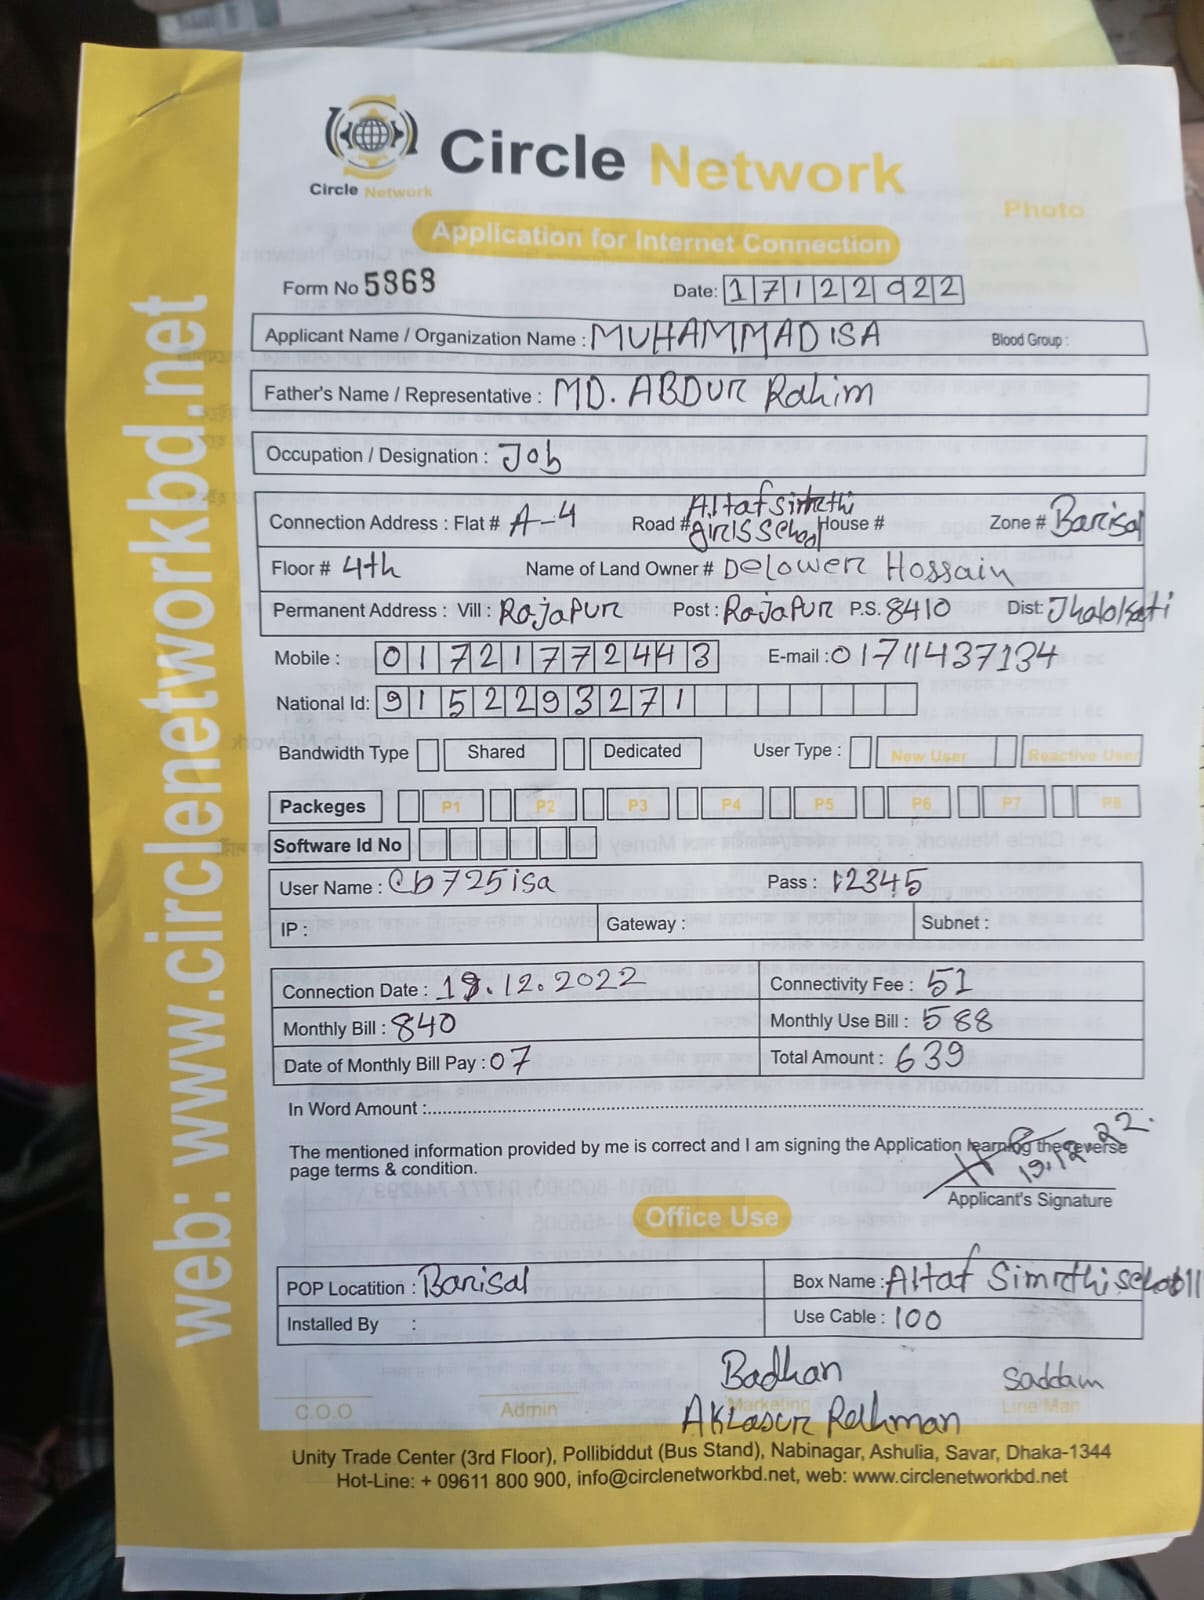 Circle Network
Circle Network
Photo
Application for Internet Connection
Form No 5868
Date: 17122022
Applicant Name / Organization Name : MUHAMMAD ISA Blood Group :
Father's Name / Representative : MD. ABDUR Rahim
Occupation / Designation : Job
Connection Address : Flat # A-4 Road # Altaf Simrthi girls School House # Zone # Barisal
Floor # 4th Name of Land Owner # Delower Hossain
Permanent Address : Vill : Rajapur Post : Rajapur P.S. 8410 Dist: Jhalokati
Mobile : 01721772443 E-mail : 01711437134
National Id: 9152293271
Bandwidth Type Shared Dedicated User Type : New User Reactive User
Packeges P1 P2 P3 P4 P5 P6 P7 P8
Software Id No
User Name : Cb725isa Pass : 12345
IP : Gateway : Subnet :
Connection Date : 19.12.2022 Connectivity Fee : 51
Monthly Bill : 840 Monthly Use Bill : 588
Date of Monthly Bill Pay : 07 Total Amount : 639
In Word Amount :
The mentioned information provided by me is correct and I am signing the Application learning the reverse
page terms & condition.
19.12.22.
Applicant's Signature
Office Use
POP Locatition : Barisal Box Name : Altaf Simrthi School
Installed By : Use Cable : 100
Badhan Saddam
C.O.O Admin Marketing Line Man
Aklasur Rahman
Unity Trade Center (3rd Floor), Pollibiddut (Bus Stand), Nabinagar, Ashulia, Savar, Dhaka-1344
Hot-Line: + 09611 800 900, info@circlenetworkbd.net, web: www.circlenetworkbd.net
web: www.circlenetworkbd.net